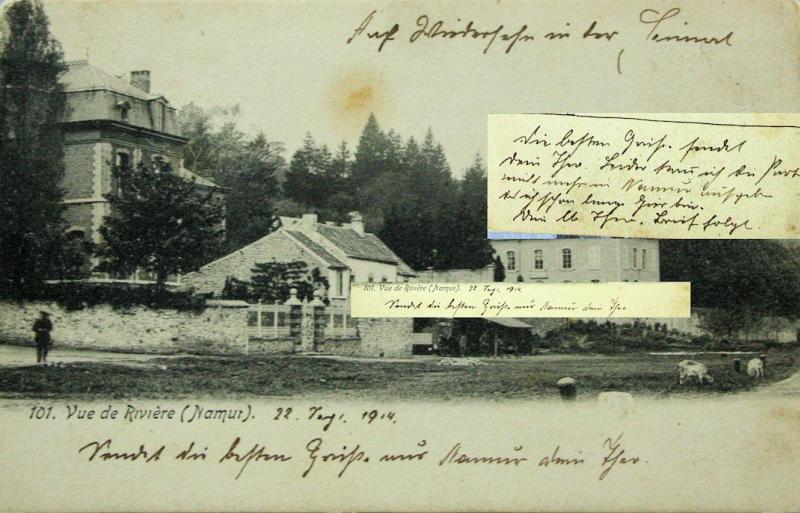 Auf Wiedersehn in der Heimat
Die besten Grüße sendet
Dein Theo. Leider kann ich die Karte
nicht mehr in Namur aufgeben
da ich schon lange hier bin.
Dein lb. Theo. Brief folgt.
101. Vue de Rivière (Namur). 22. Sept. 1914
Sendet die besten Grüße aus Namur dein Theo
101. Vue de Rivière (Namur). 22. Sept. 1914.
Sendet die besten Grüße aus Namur dein Theo.